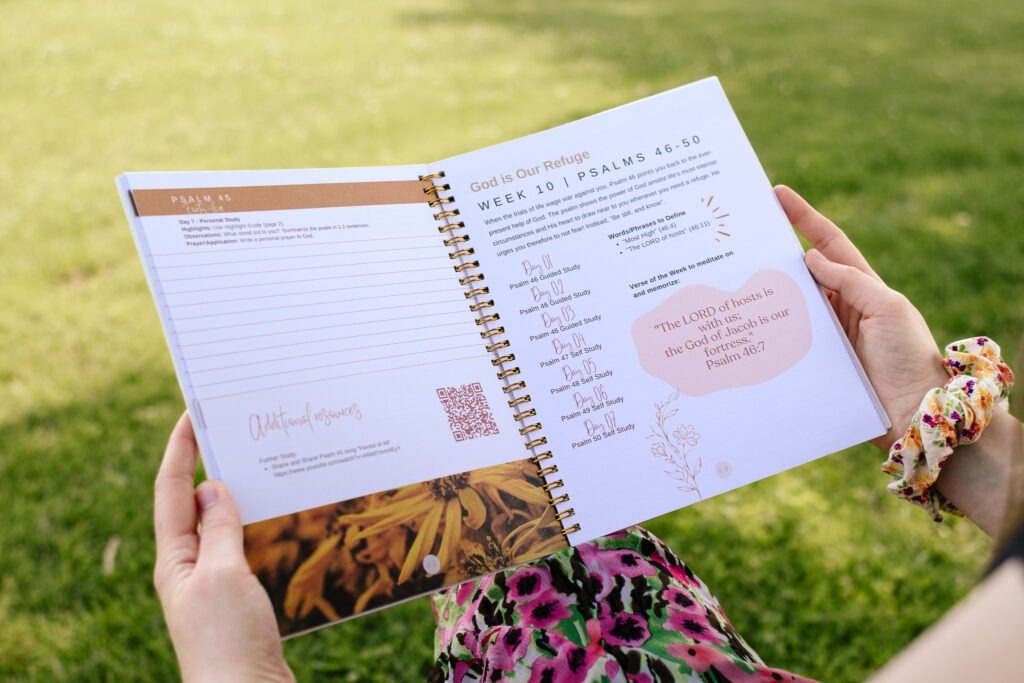 PSALM 45
forty-five
Day 7 - Personal Study
Highlights: Use Highlight Guide (page 2)
Observations: What stood out to you? Summarize the psalm in 1-2 sentences.
Prayer/Application: Write a personal prayer to God.
Additional resources
Further Study:
Shane and Shane Psalm 45 song "Fairest of All"
God is Our Refuge
WEEK 10 | PSALMS 46-50
When the trials of life wage war against you, Psalm 46 points you back to the ever-
present help of God. The psalm shows the power of God amidst life's most intense
circumstances and His heart to draw near to you whenever you need a refuge. He
urges you therefore to not fear! Instead, "Be still, and know".
Day 01
Psalm 46 Guided Study
Day 02
Psalm 46 Guided Study
Day 03
Psalm 46 Guided Study
Day 04
Psalm 47 Self Study
Day 05
Psalm 48 Self Study
Day 06
Psalm 49 Self Study
Day 07
Psalm 50 Self Study
Words/Phrases to Define
• "Most High" (46:4)
• "The LORD of hosts" (46:11)
Verse of the Week to meditate on
and memorize:
"The LORD of hosts is
with us;
the God of Jacob is our
fortress."
Psalm 46:7